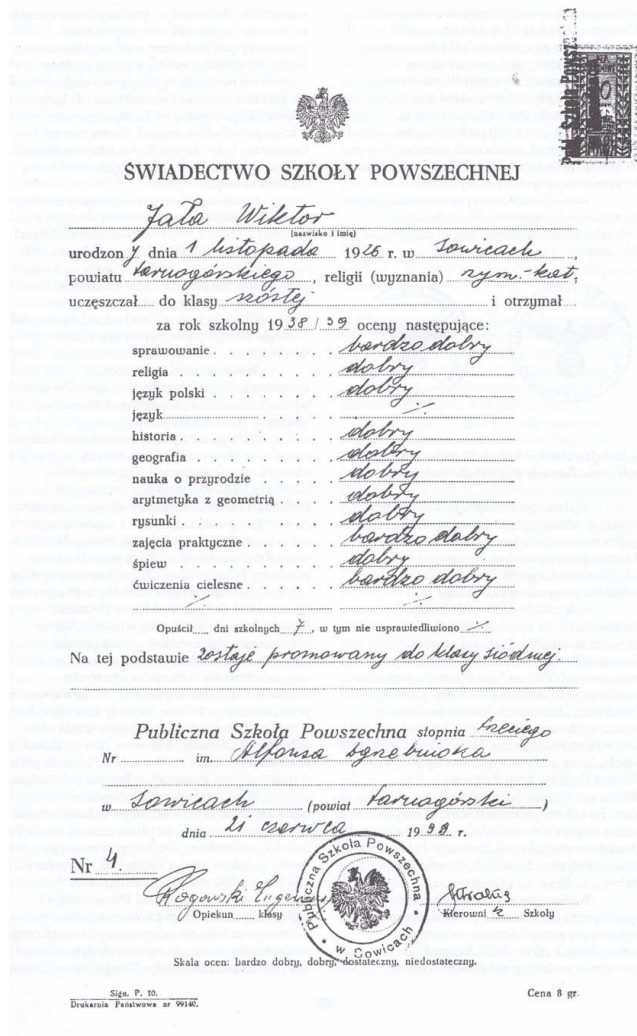 Publ. Szkoła Powszechna
ŚWIADECTWO SZKOŁY POWSZECHNEJ
Jała Wiktor
(nazwisko i imię)
urodzony dnia 1 listopada 1926 r. w Sowicach,
powiatu tarnogórskiego, religii (wyznania) rzym-kat,
uczęszczał do klasy szóstej i otrzymał
za rok szkolny 1938/39 oceny następujące:
sprawowanie . . . . bardzo dobry
religia . . . . . dobry
język polski . . . . dobry
język
historia . . . . . dobry
geografia . . . . . dobry
nauka o przyrodzie . . . dobry
arytmetyka z geometrią . . dobry
rysunki . . . . . dobry
zajęcia praktyczne . . . bardzo dobry
śpiew . . . . . dobry
ćwiczenia cielesne . . . bardzo dobry
Opuścił dni szkolnych 7, w tym nie usprawiedliwiono
Na tej podstawie zostaje promowany do klasy siódmej
Publiczna Szkoła Powszechna stopnia trzeciego
Nr im. Alfonsa Zgrzebnioka
w Sowicach (powiat tarnogórski)
dnia 21 czerwca 1939 r.
Nr 4.
Publiczna Szkoła Powszechna
w Sowicach
Rogowski Eugeniusz
Opiekun klasy
Kierownik Szkoły
Skala ocen: bardzo dobry, dobry, dostateczny, niedostateczny.
Sign. P. 10.
Drukarnia Państwowa nr 99140.
Cena 8 gr.